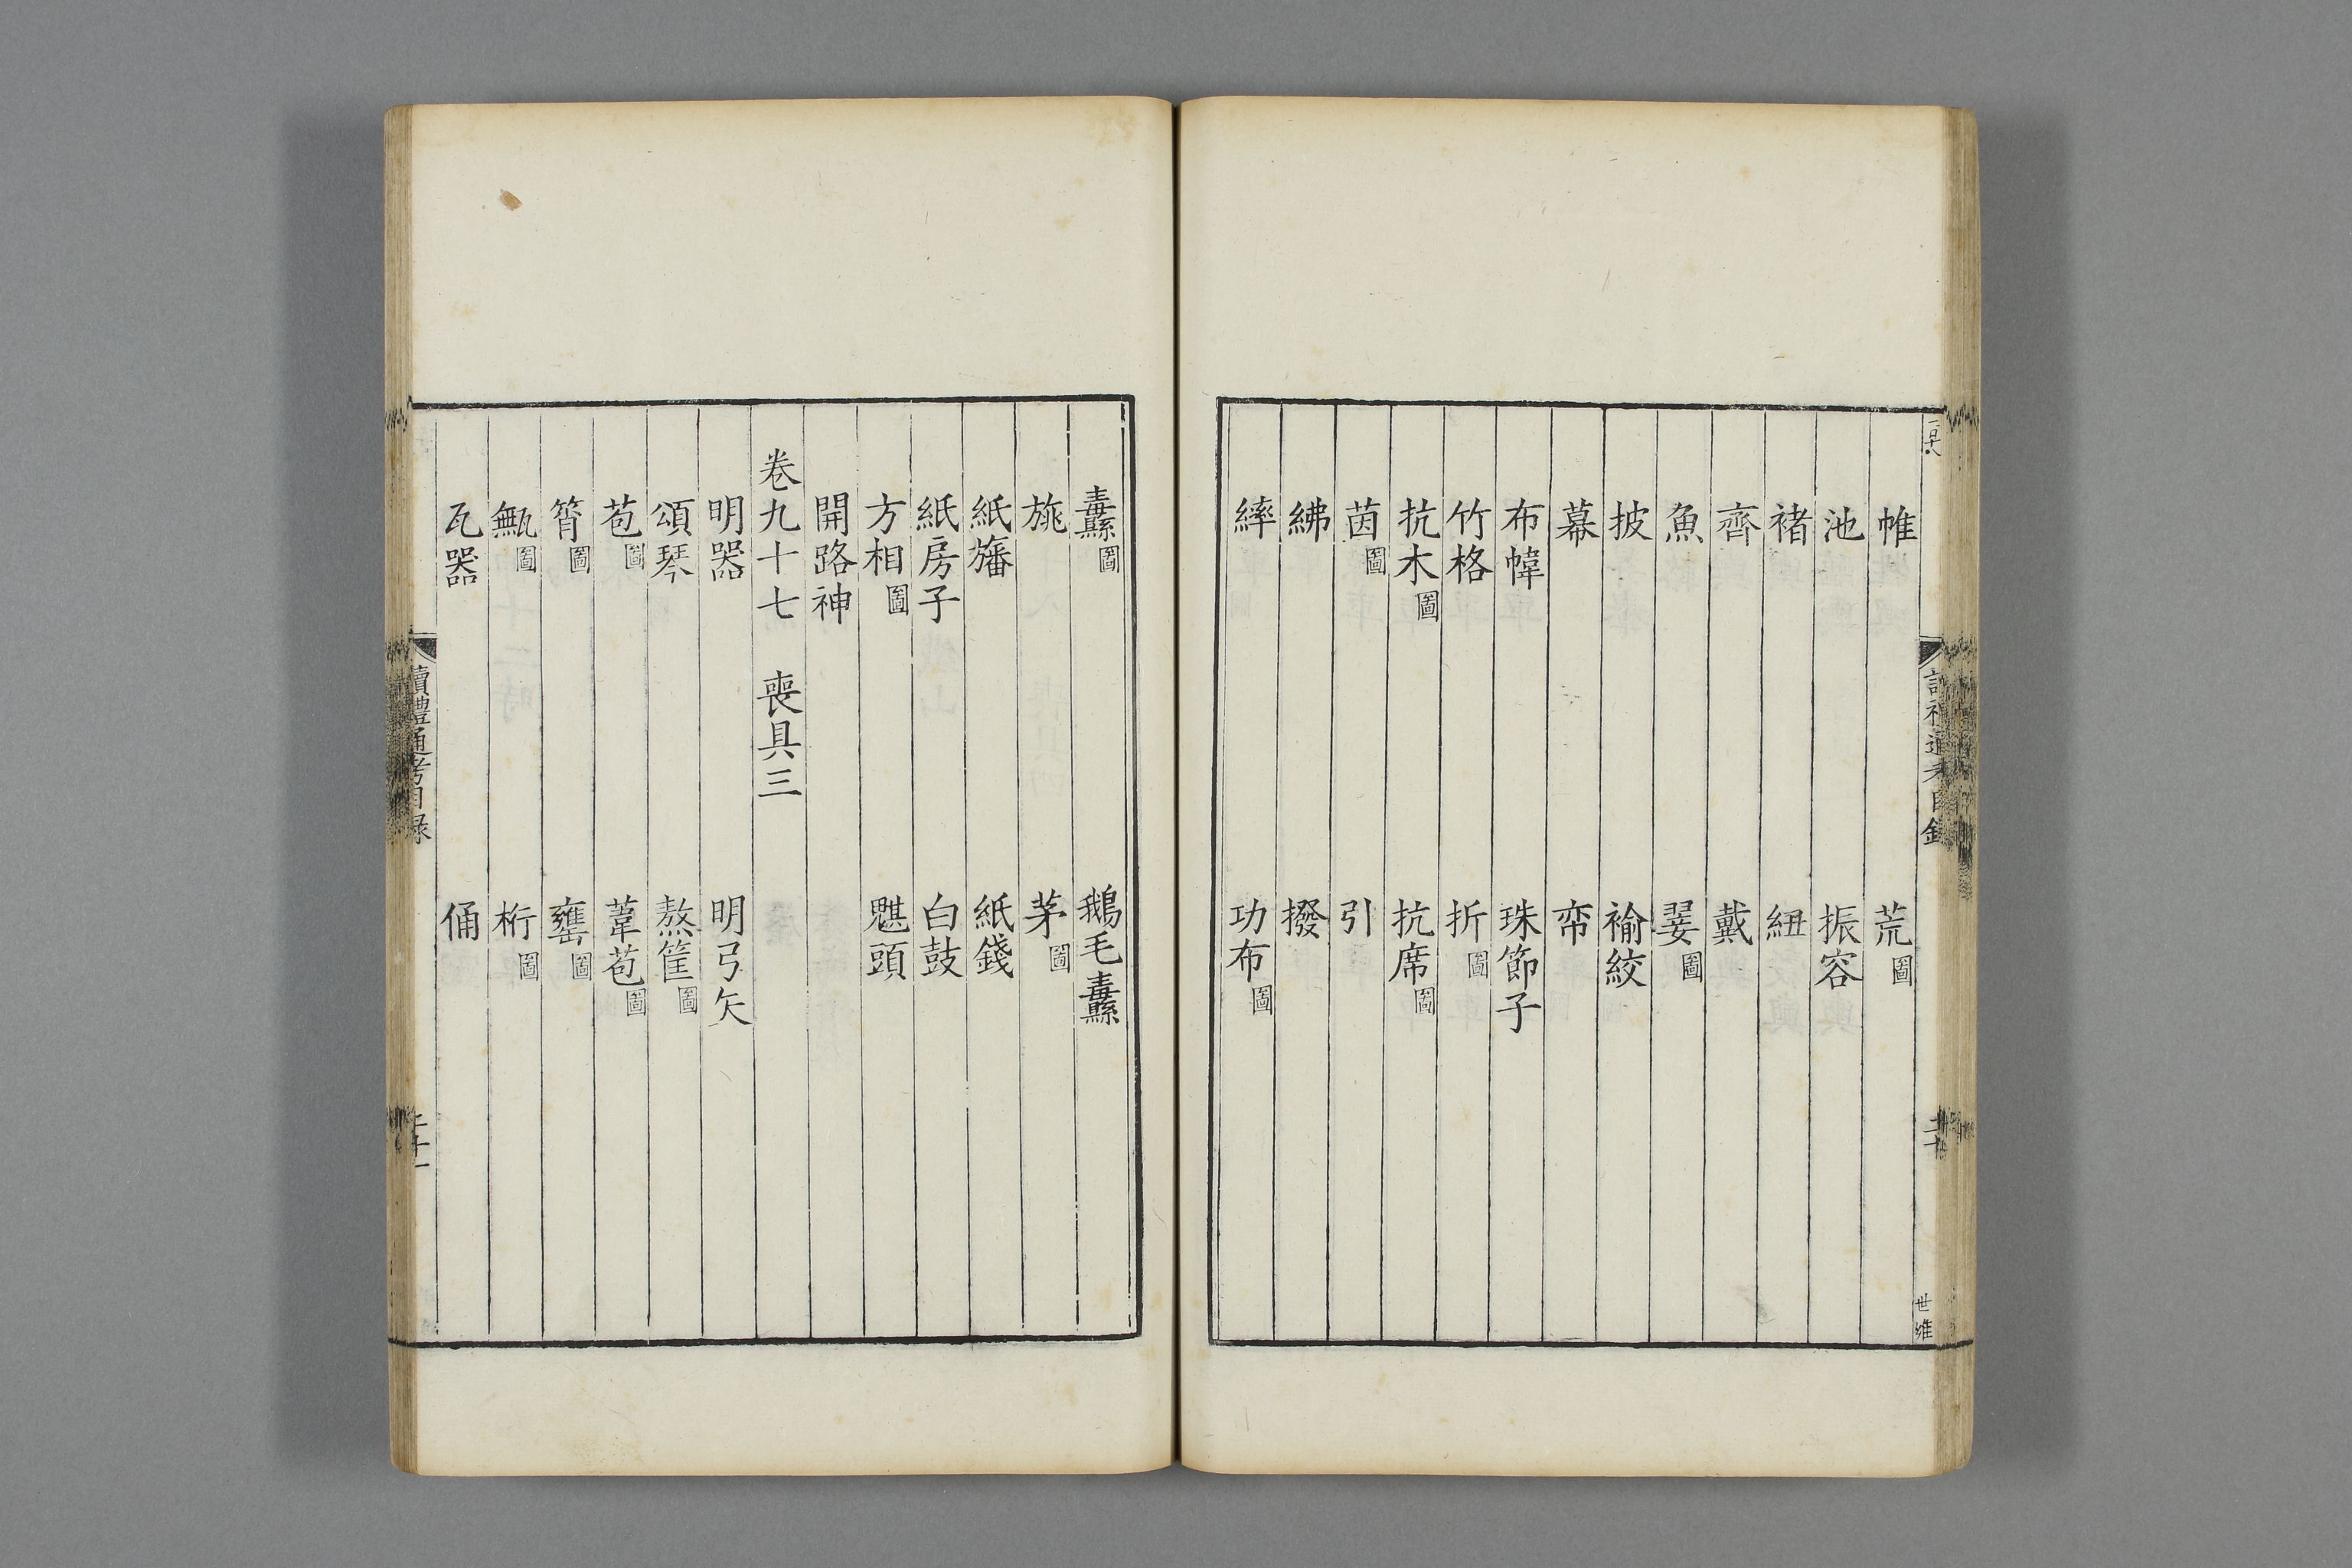 帷　荒圖
池　振容
褚　紐
齊　戴
魚　翣圖
披　褕絞
幕　帟
布幃　珠節子
竹格　折圖
抗木圖　抗席圖
茵圖　引
紼　撥
繂　功布圖
世維
纛圖　鵝毛纛
旐　茅圖
紙旛　紙錢
紙房子　白鼓
方相圖　魌頭
開路神
卷九十七　喪具三
明器　明弓矢
頌琴　熬筐圖
苞圖　葦苞圖
筲圖　罋圖
甒圖　桁圖
瓦器　俑
讀禮通考目錄